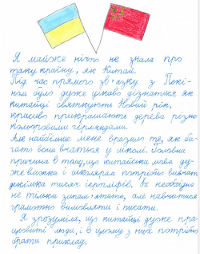 Я майже нічого не знала про
таку країну, як Китай.
Під час прямого зв'язку з Пекі-
ном було дуже цікаво дізнатися як
китайці святкують Новий рік,
красиво прикрашають дерева різно
кольоровими гірляндами.
Але найбільше мене вразило те, як ба-
гато вони вчаться у школі. Головна
причина в тому, що китайська мова ду-
же важка і школярам потрібно вивчити
декілька тисяч ієрогліфів, їх необхідно
не тільки запам'ятати, але навчитися
грамотно вимовляти і писати.
Я зрозуміла, що китайці дуже пра-
цьовиті люди, і в цьому з них потрібно
брати приклад.